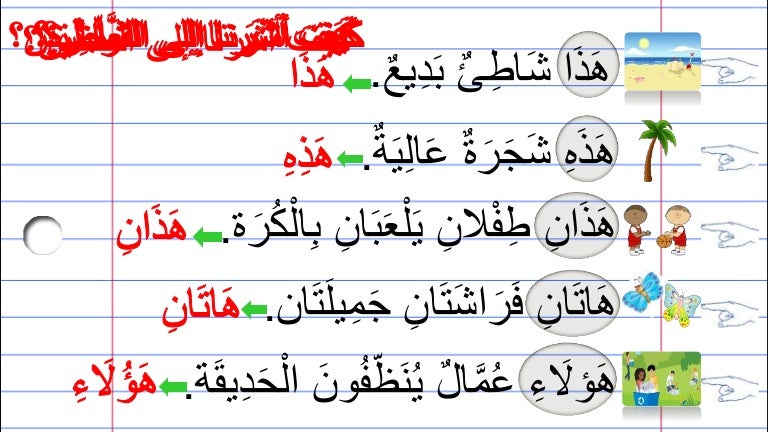 هَذَا شَاطِئٌ بَدِيعٌ. هَذَا
هَذَهِ شَجَرَةٌ عَالِيَةٌ. هَذِهِ
هَذَانِ طِفْلانِ يَلْعَبَانِ بِالْكُرَة. هَذَانِ
هَاتَانِ فَرَاشَتَانِ جَمِيلَتَان. هَاتَانِ
هَؤلَاءِ عُمَّالٌ يُنَظِّفُونَ الْحَدِيقَة. هَؤُلَاءِ